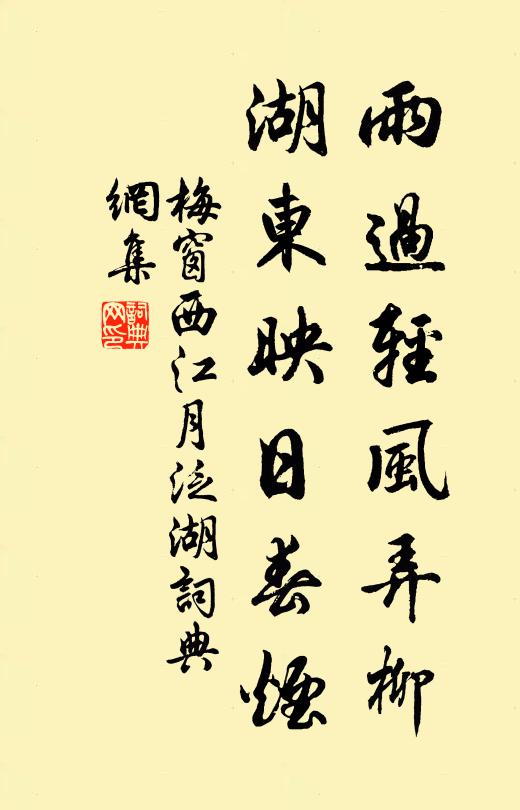 雨過輕風弄柳
湖東映日春煙
梅窗西江月泛湖詞典
網集
詞典
网印